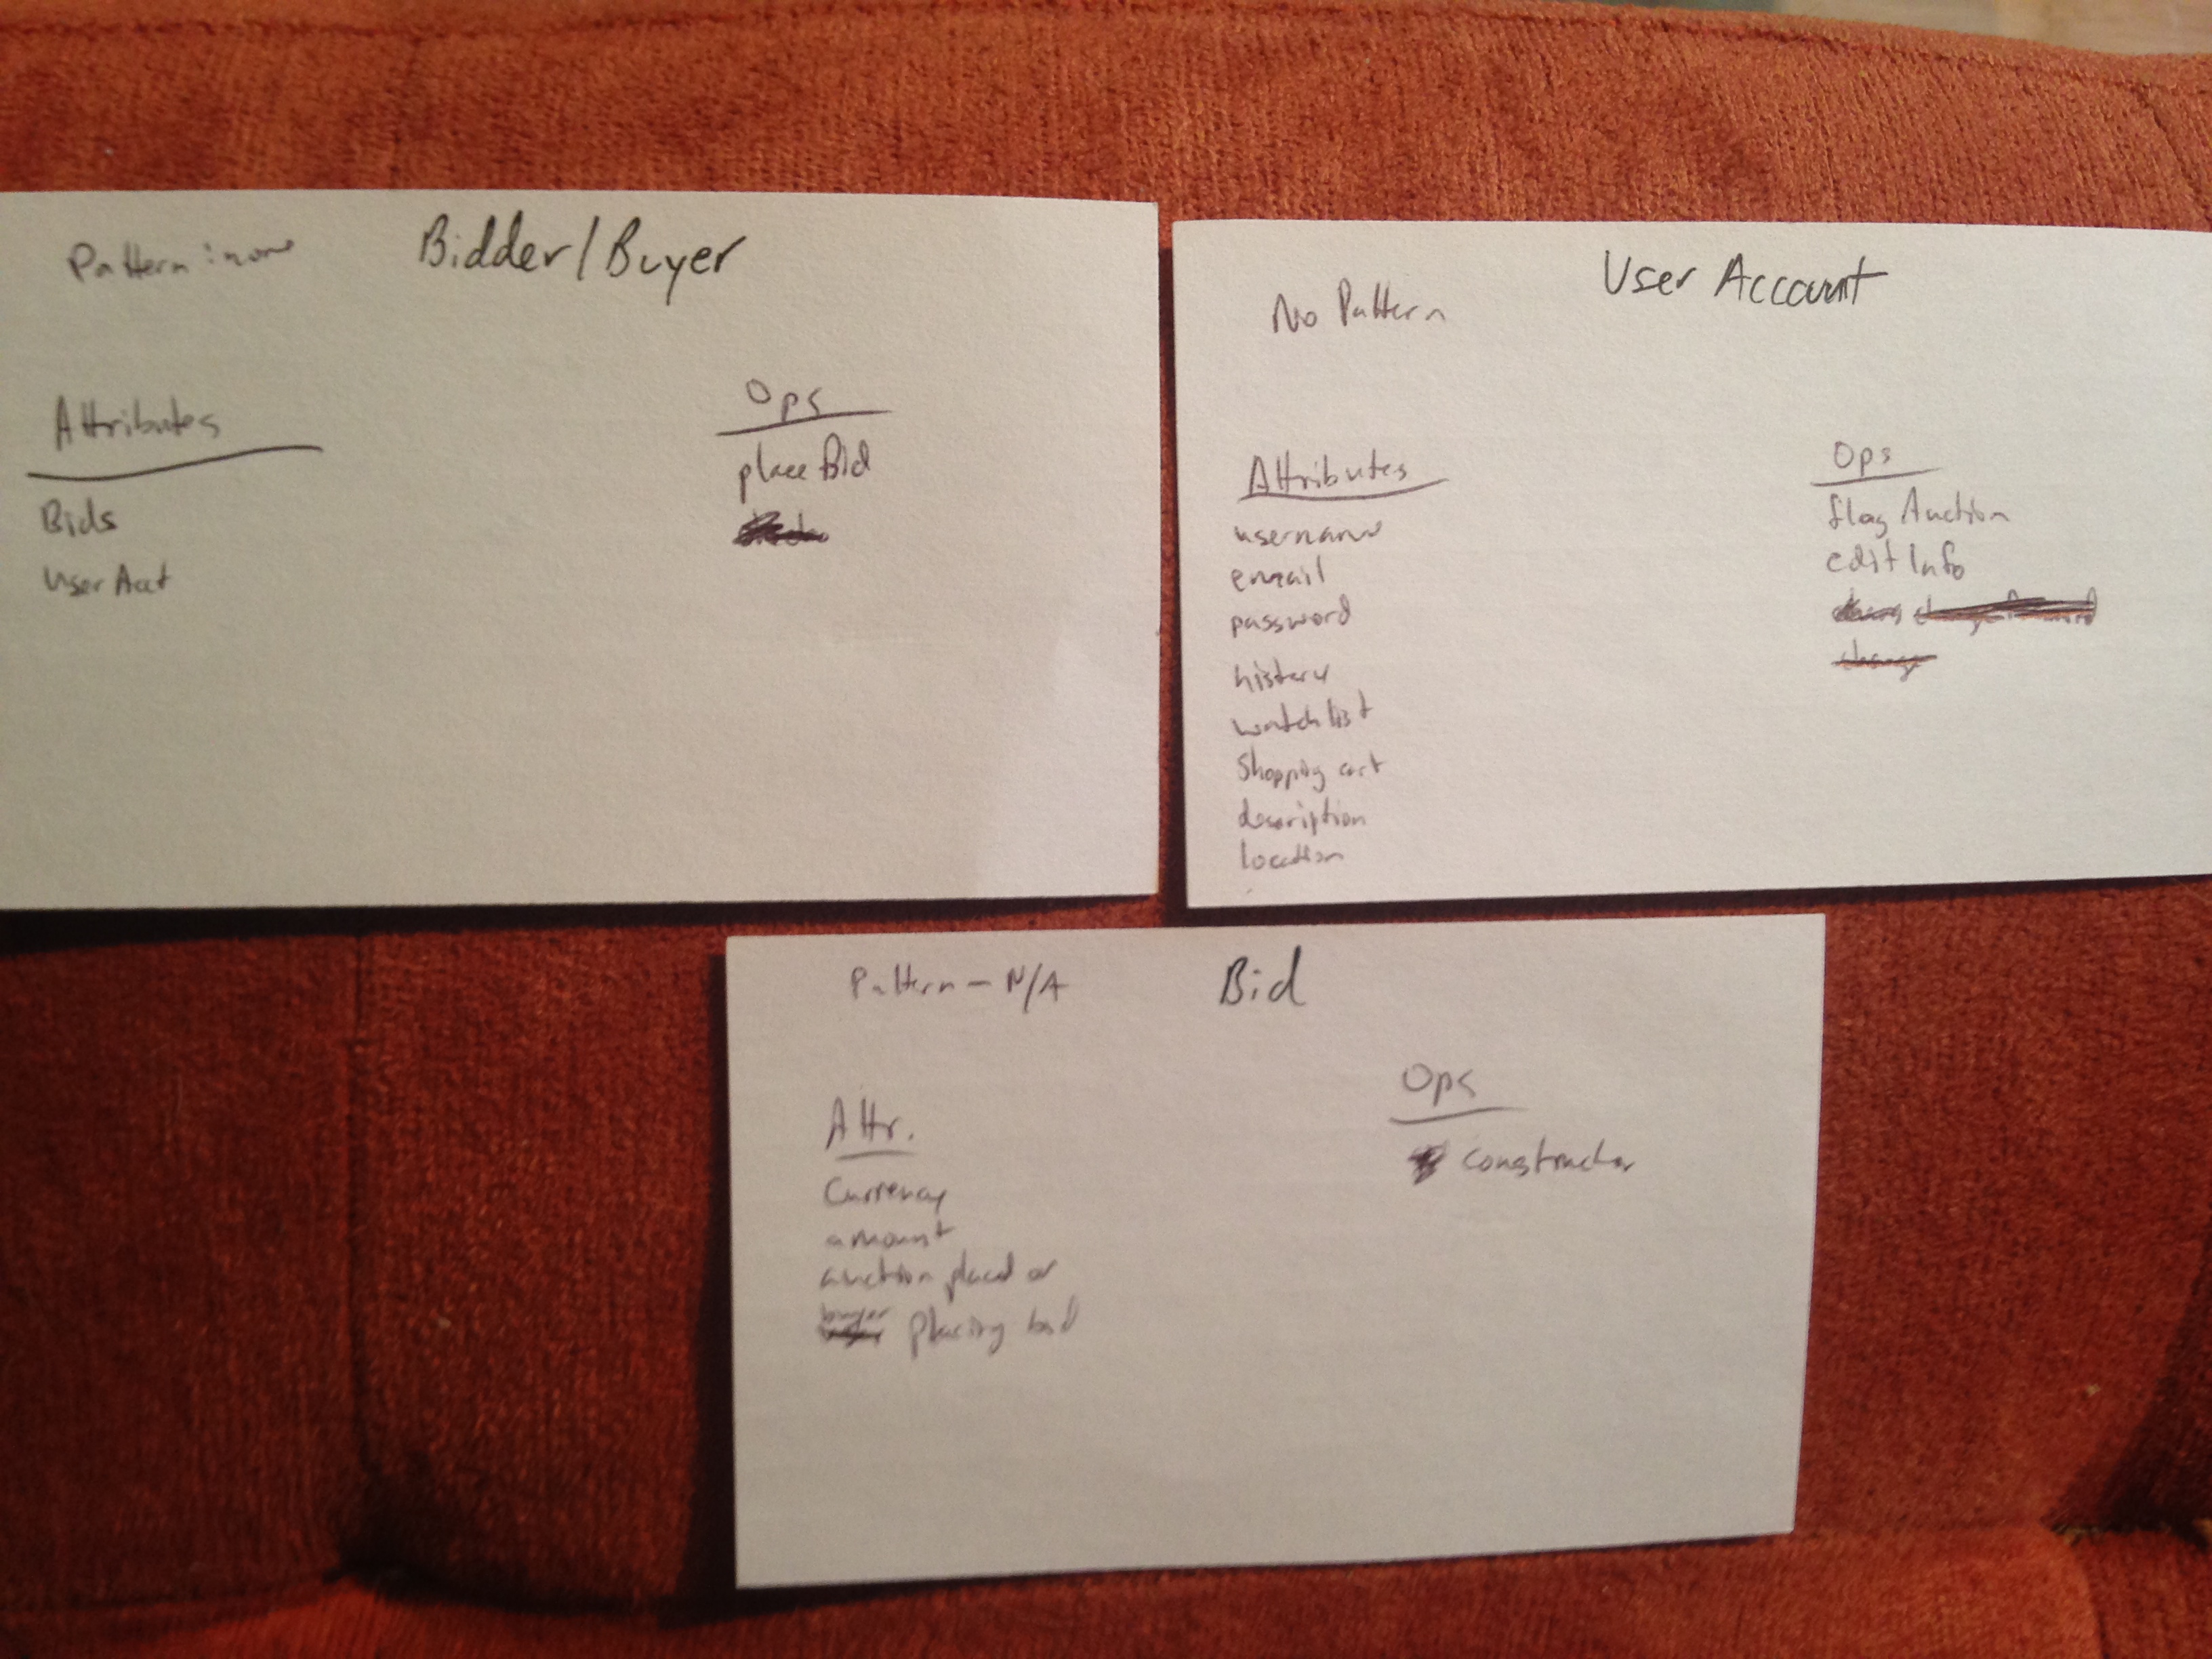 Pattern: none
Bidder/Buyer
Attributes
Bids
User Acct
Ops
place Bid
No Pattern
User Account
Attributes
username
email
password
history
watch list
Shopping cart
description
location
Ops
flag Auction
edit Info
change
Pattern - N/A
Bid
Attr.
Currency
amount
auction placed on
buyer placing bid
Ops
constructor